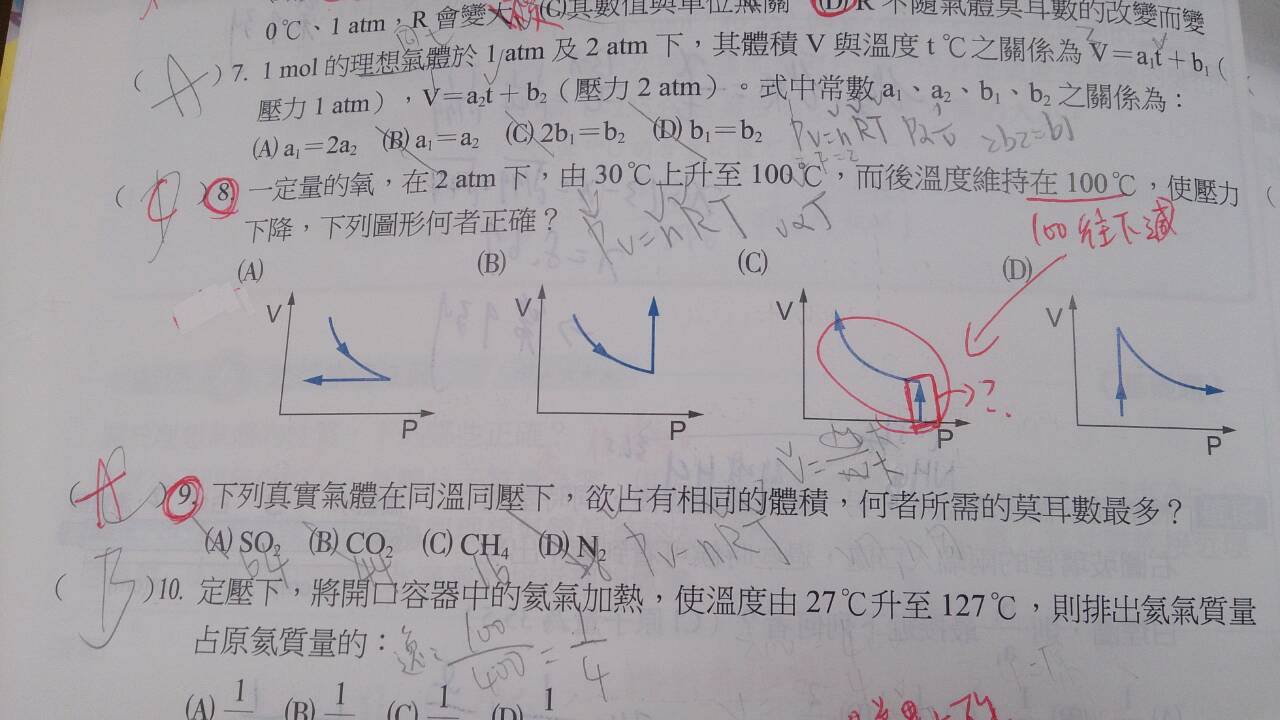 0℃、1 atm，R 會變大 (C)其數值與單位無關 (D) R 不隨氣體莫耳數的改變而變
( A ) 7. 1 mol 的理想氣體於 1 atm 及 2 atm 下，其體積 V 與溫度 t ℃之關係為 V＝a₁t＋b₁（
壓力 1 atm），V＝a₂t＋b₂（壓力 2 atm）。式中常數 a₁、a₂、b₁、b₂ 之關係為：
(A) a₁＝2a₂ (B) a₁＝a₂ (C) 2b₁＝b₂ (D) b₁＝b₂ PV=nRT 2b2=b1
( C ) 8. 一定量的氧，在 2 atm 下，由 30℃上升至 100℃，而後溫度維持在 100℃，使壓力
下降，下列圖形何者正確？ PV=nRT V∝T
100往下減
(A) (B) (C) (D)
V V V V
→?
P P P P
( A ) 9. 下列真實氣體在同溫同壓下，欲占有相同的體積，何者所需的莫耳數最多？
(A) SO₂ (B) CO₂ (C) CH₄ (D) N₂ PV=nRT
64 44 16 28
( B ) 10. 定壓下，將開口容器中的氦氣加熱，使溫度由 27℃升至 127℃，則排出氦氣質量
占原氦質量的： 逸= 100/400 = 1/4
(A) 1 (B) 1 (C) 1 (D) 1